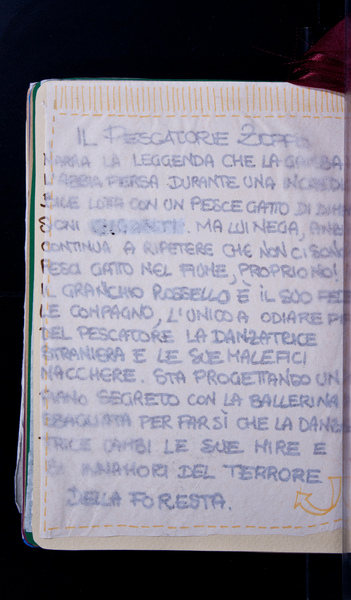 IL PESCATORE ZOPPO
NARRA LA LEGGENDA CHE LA GAMBA
L'ABBIA PERSA DURANTE UNA INCREDI
BILE LOTTA CON UN PESCE GATTO DI DIMEN
SIONI GIGANTI. MA LUI NEGA, ANZI
CONTINUA A RIPETERE CHE NON CI SONO
PESCI GATTO NEL FIUME, PROPRIO NO!
IL GRANCHIO ROSSELLO È IL SUO FEDE
LE COMPAGNO, L'UNICO A ODIARE PIÙ
DEL PESCATORE LA DANZATRICE
STRANIERA E LE SUE MALEFICI
NACCHERE. STA PROGETTANDO UN
PIANO SEGRETO CON LA BALLERINA
SBAGLIATA PER FAR SÌ CHE LA DANZA
TRICE CAMBI LE SUE MIRE E
SI INNAMORI DEL TERRORE
DELLA FORESTA.